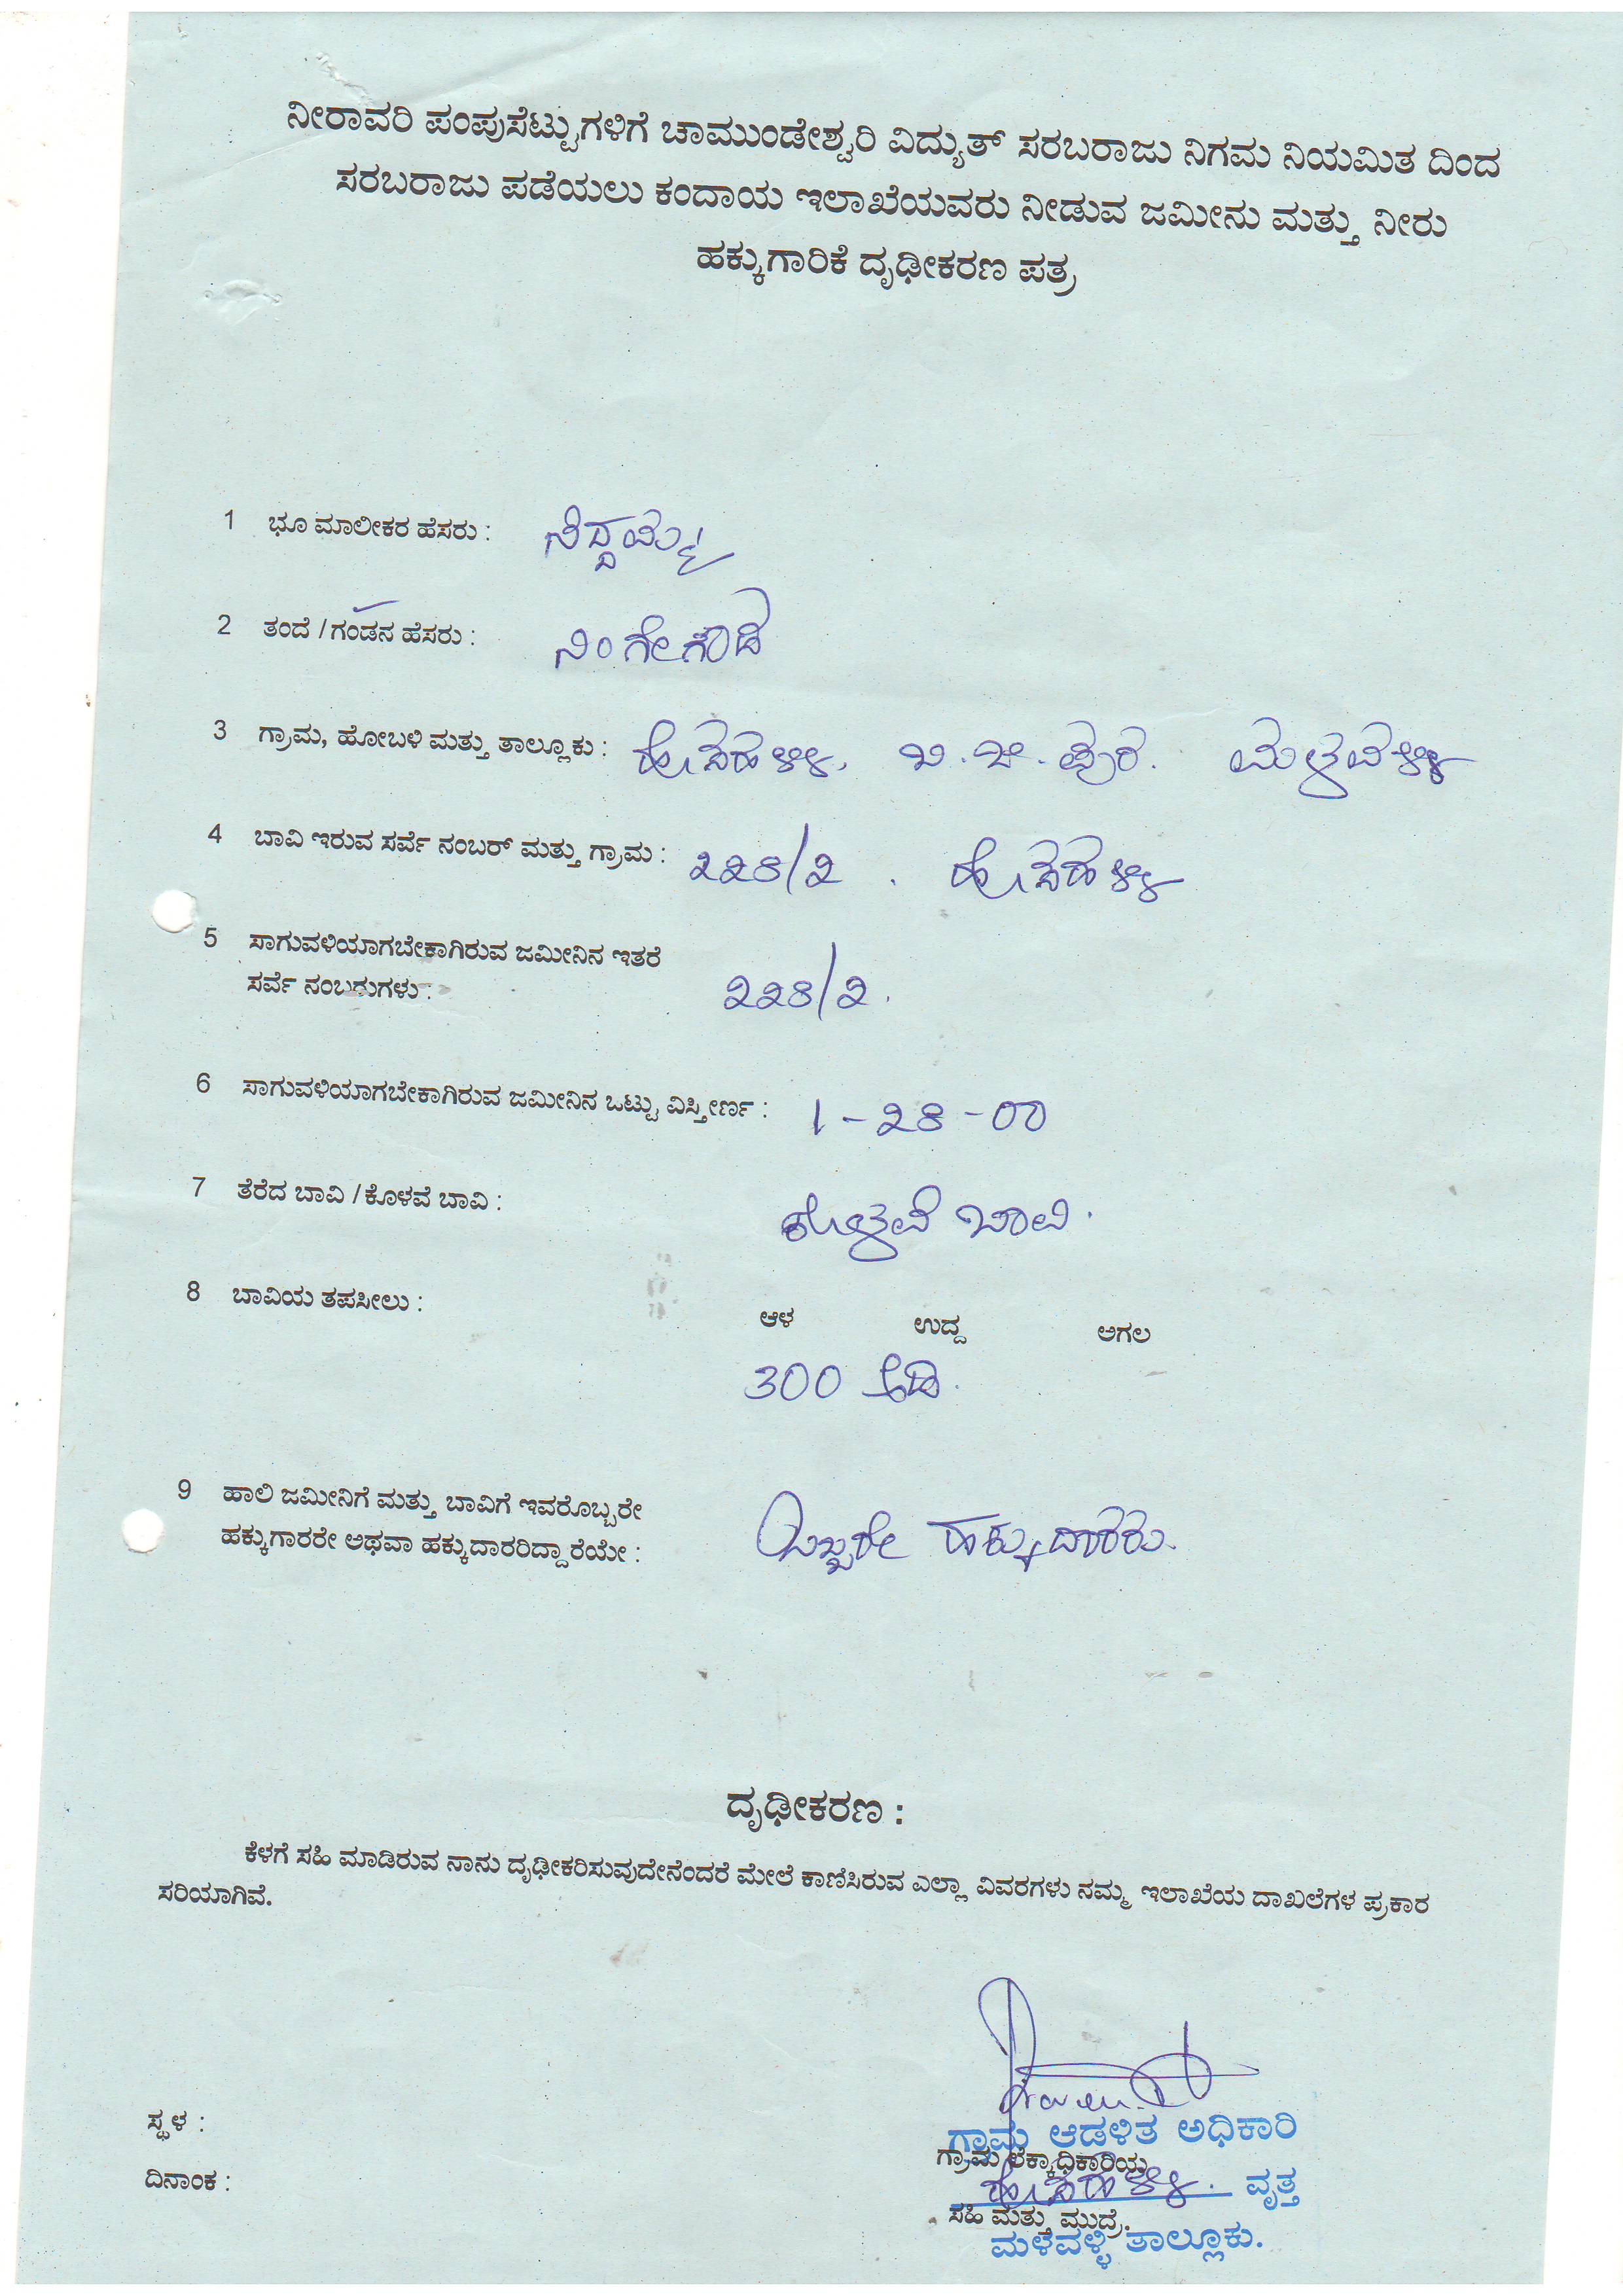 ನೀರಾವರಿ ಪಂಪುಸೆಟ್ಟುಗಳಿಗೆ ಚಾಮುಂಡೇಶ್ವರಿ ವಿದ್ಯುತ್ ಸರಬರಾಜು ನಿಗಮ ನಿಯಮಿತ ದಿಂದ
ಸರಬರಾಜು ಪಡೆಯಲು ಕಂದಾಯ ಇಲಾಖೆಯವರು ನೀಡುವ ಜಮೀನು ಮತ್ತು ನೀರು
ಹಕ್ಕುಗಾರಿಕೆ ದೃಢೀಕರಣ ಪತ್ರ
1 ಭೂ ಮಾಲೀಕರ ಹೆಸರು : ಸಿದ್ದಮ್ಮ
2 ತಂದೆ / ಗಂಡನ ಹೆಸರು : ನಿಂಗೇಗೌಡ
3 ಗ್ರಾಮ, ಹೋಬಳಿ ಮತ್ತು ತಾಲ್ಲೂಕು : ಹೊಸಹಳ್ಳಿ, ಬಿ.ಜಿ.ಪುರ. ಮಳವಳ್ಳಿ
4 ಬಾವಿ ಇರುವ ಸರ್ವೆ ನಂಬರ್ ಮತ್ತು ಗ್ರಾಮ : 228/2 . ಹೊಸಹಳ್ಳಿ
5 ಸಾಗುವಳಿಯಾಗಬೇಕಾಗಿರುವ ಜಮೀನಿನ ಇತರೆ
ಸರ್ವೆ ನಂಬರುಗಳು : 228/2.
6 ಸಾಗುವಳಿಯಾಗಬೇಕಾಗಿರುವ ಜಮೀನಿನ ಒಟ್ಟು ವಿಸ್ತೀರ್ಣ : 1-28-00
7 ತೆರೆದ ಬಾವಿ / ಕೊಳವೆ ಬಾವಿ : ಕೊಳವೆ ಬಾವಿ.
8 ಬಾವಿಯ ತಪಸೀಲು : ಆಳ ಉದ್ದ ಅಗಲ
300 ಅಡಿ.
9 ಹಾಲಿ ಜಮೀನಿಗೆ ಮತ್ತು ಬಾವಿಗೆ ಇವರೊಬ್ಬರೇ
ಹಕ್ಕುಗಾರರೇ ಅಥವಾ ಹಕ್ಕುದಾರರಿದ್ದಾರೆಯೇ : ಒಬ್ಬರೇ ಹಕ್ಕುದಾರರು.
ದೃಢೀಕರಣ :
ಕೆಳಗೆ ಸಹಿ ಮಾಡಿರುವ ನಾನು ದೃಢೀಕರಿಸುವುದೇನೆಂದರೆ ಮೇಲೆ ಕಾಣಿಸಿರುವ ಎಲ್ಲಾ ವಿವರಗಳು ನಮ್ಮ ಇಲಾಖೆಯ ದಾಖಲೆಗಳ ಪ್ರಕಾರ
ಸರಿಯಾಗಿವೆ.
ಸ್ಥಳ :
ಗ್ರಾಮ ಆಡಳಿತ ಅಧಿಕಾರಿ
ಗ್ರಾಮ ಲೆಕ್ಕಾಧಿಕಾರಿಯ
ದಿನಾಂಕ :
ಹೊಸಹಳ್ಳಿ. ವೃತ್ತ
ಸಹಿ ಮತ್ತು ಮುದ್ರೆ.
ಮಳವಳ್ಳಿ ತಾಲ್ಲೂಕು.